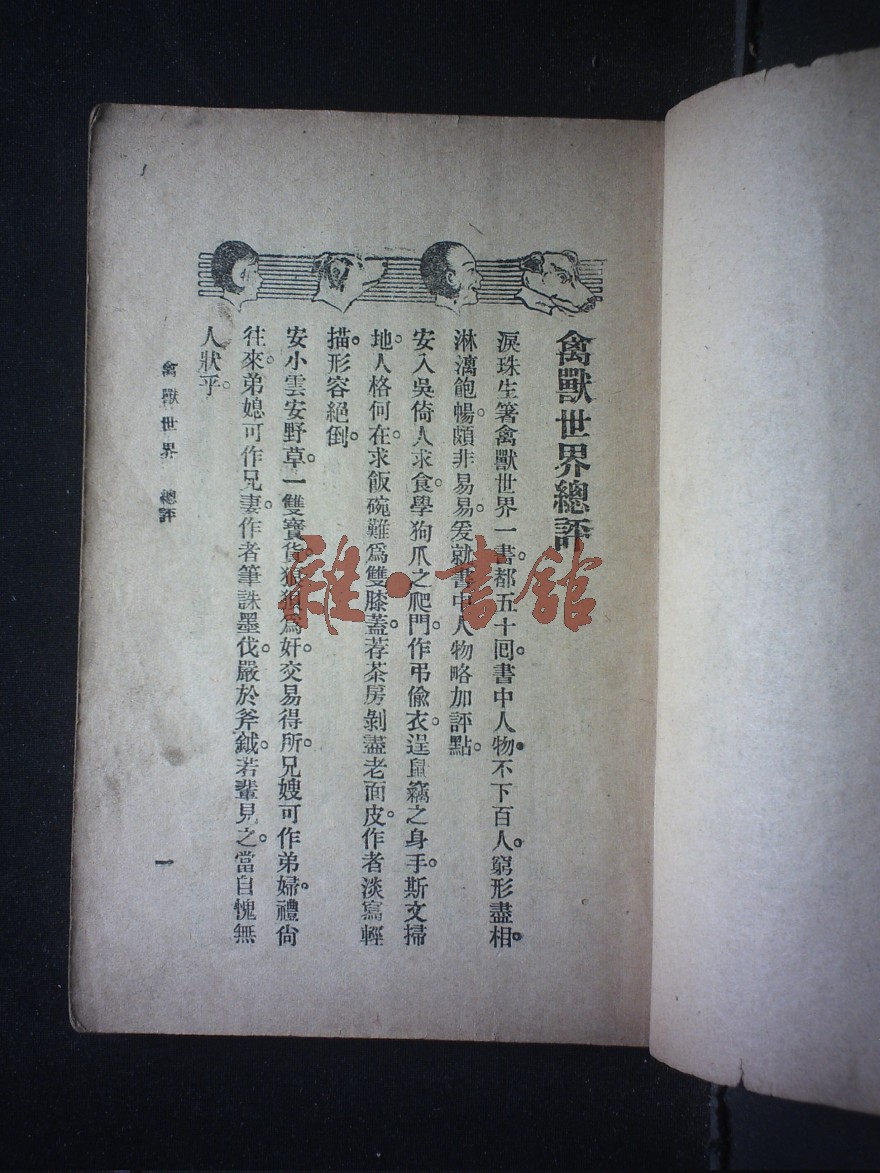 禽獸世界總評
淚珠生箸禽獸世界一書。都五十囘。書中人物。不下百人。窮形盡相。
淋漓飽暢。頗非易易。爰就書中人物。略加評點。
安入吳倚人求食。學狗爪之爬門。作弔偸衣。逞鼠竊之身手。斯文掃
地。人格何在。求飯碗難爲雙膝蓋。荐茶房剝盡老面皮。作者淡寫輕
描。形容絕倒。
安小雲安野草。一雙寶貨。狼狽爲奸。交易得所。兄嫂可作弟婦。禮尙
往來。弟媳可作兄妻。作者筆誅墨伐。嚴於斧鉞。若輩見之。當自愧無
人狀乎。
禽獸世界 總評
一
雜·書館